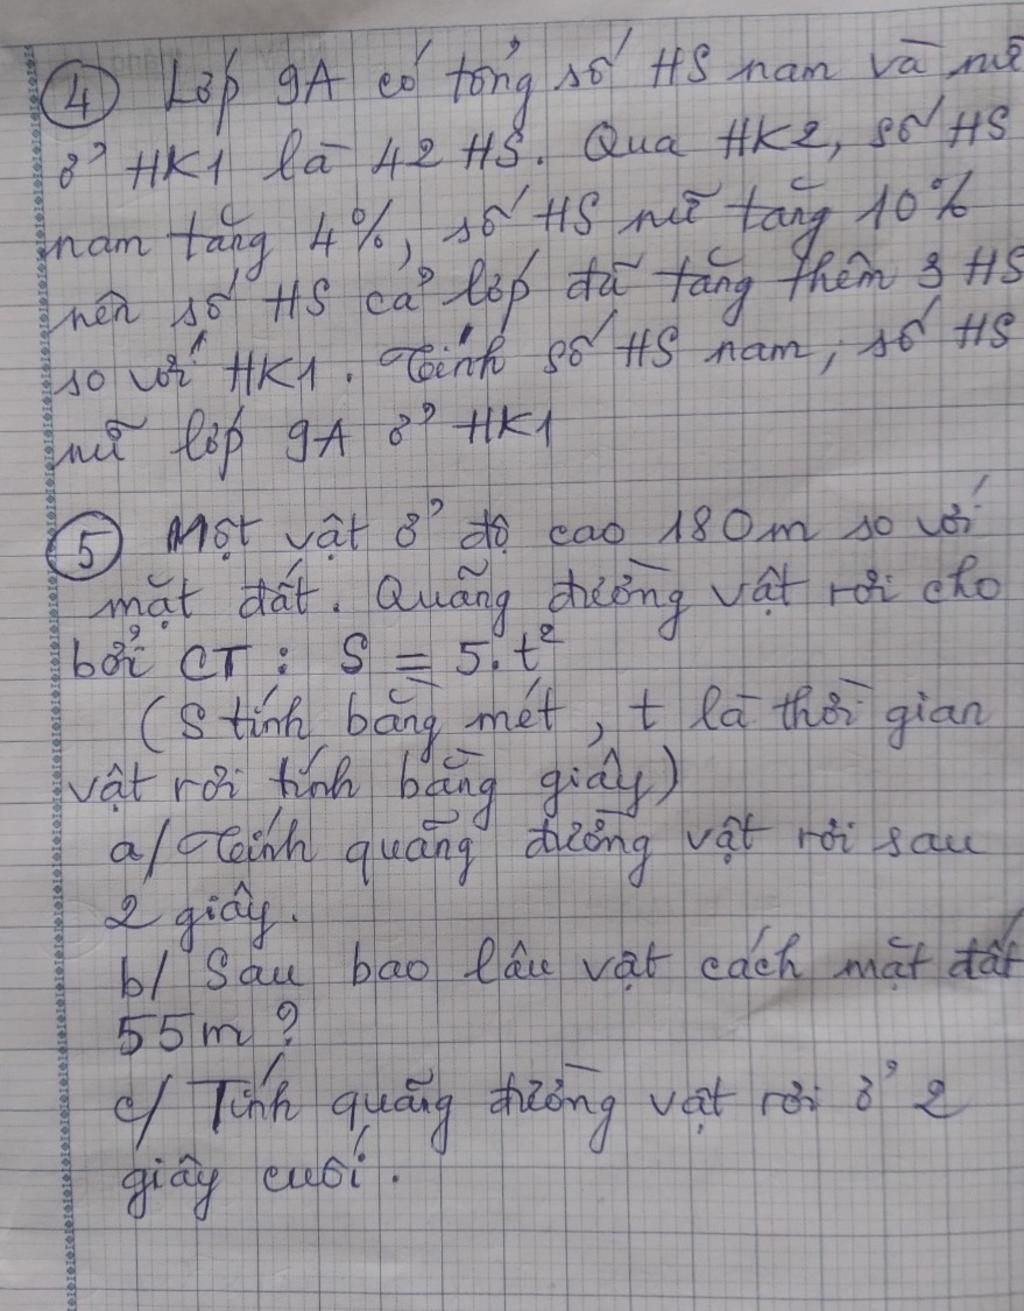 ④ Lớp 9A có tổng số HS nam và nữ
ở HK1 là 42 HS. Qua HK2, số HS
nam tăng 4%, số HS nữ tăng 10%
nên số HS cả lớp đã tăng thêm 3 HS
so với HK1. Tính số HS nam, số HS
nữ lớp 9A ở HK1
⑤ Một vật ở độ cao 180m so với
mặt đất. Quãng đường vật rơi cho
bởi CT : S = 5.t²
(S tính bằng mét, t là thời gian
vật rơi tính bằng giây)
a/ Tính quãng đường vật rơi sau
2 giây.
b/ Sau bao lâu vật cách mặt đất
55m ?
c/ Tính quãng đường vật rơi ở 2
giây cuối.